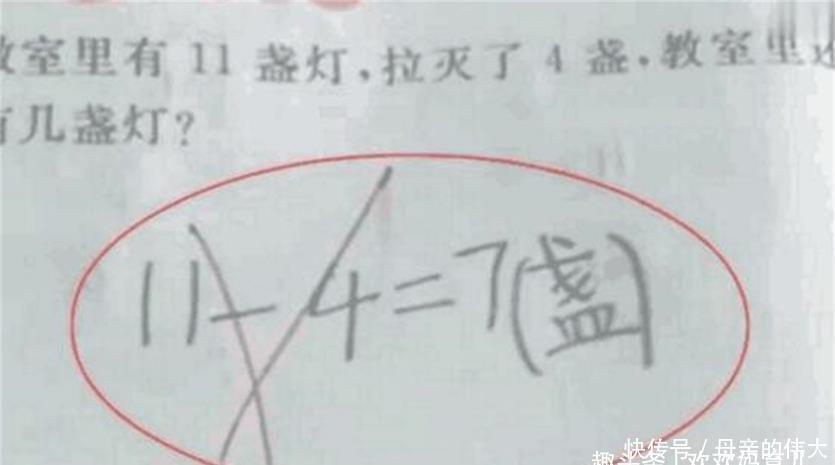 教室里有 11 盏灯,拉灭了 4 盏。教室里还
有几盏灯?
11-4=7(盏)
快传号/母亲的伟大